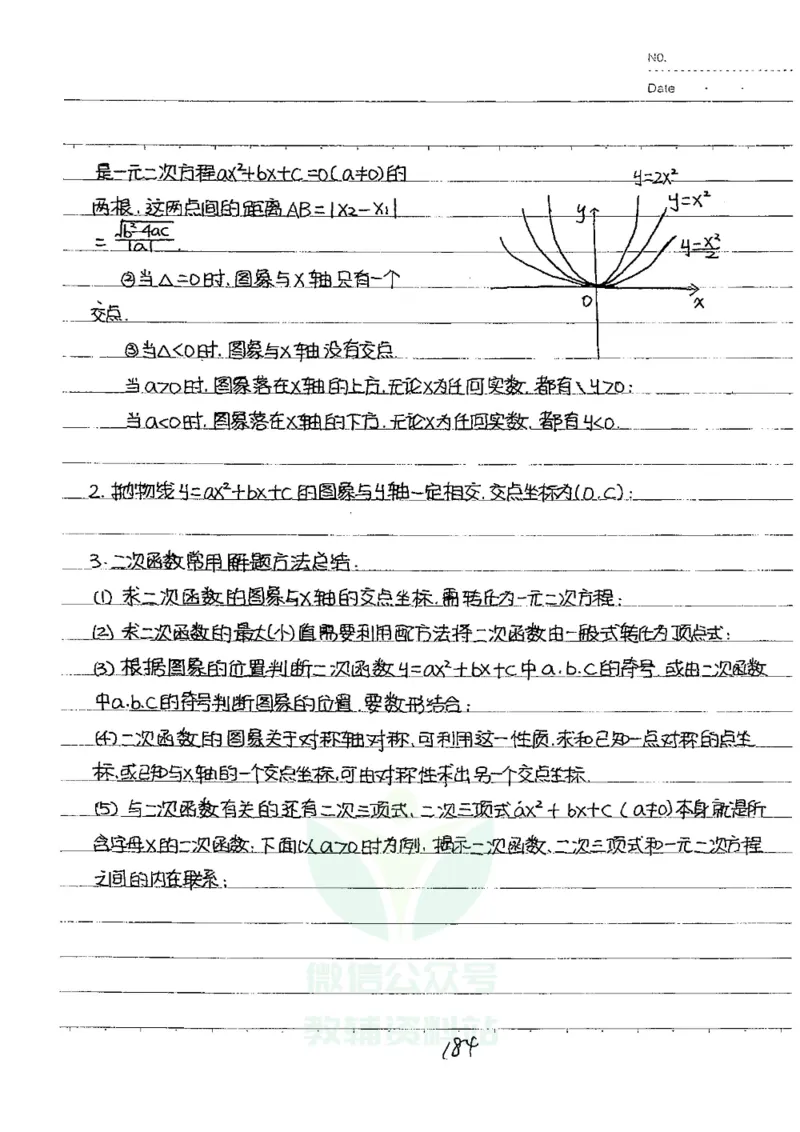 NO.
Date
是一元二次方程ax²+bx+c=0(a≠0)的
两根.这两点间的距离AB=|x₂-x₁|
=√b²-4ac/|a|.
②当△=0时,图象与x轴只有一个
交点.
③当△<0时.图象与x轴没有交点.
当a>0时,图象落在x轴的上方,无论x为任何实数,都有y>0;
当a<0时,图象落在x轴的下方,无论x为任何实数,都有y<0.
y=2x²
y=x²
y=x²/2
y
O
x
2.抛物线y=ax²+bx+c的图象与y轴一定相交,交点坐标为(0,c);
3.二次函数常用解题方法总结:
(1) 求二次函数的图象与x轴的交点坐标,需转化为一元二次方程;
(2) 求二次函数的最大(小)值需要利用配方法将二次函数由一般式转化为顶点式;
(3) 根据图象的位置判断二次函数y=ax²+bx+c中a.b.c的符号,或由二次函数
中a.b.c的符号判断图象的位置,要数形结合;
(4)二次函数的图象关于对称轴对称,可利用这一性质,求和已知一点对称的点坐
标,或已知与x轴的一个交点坐标,可由对称性求出另一个交点坐标.
(5) 与二次函数有关的还有二次三项式,二次三项式ax²+bx+c(a≠0)本身就是所
含字母x的二次函数;下面以a>0时为例,揭示二次函数、二次三项式和一元二次方程
之间的内在联系;
微信公众号
教辅资料站
184